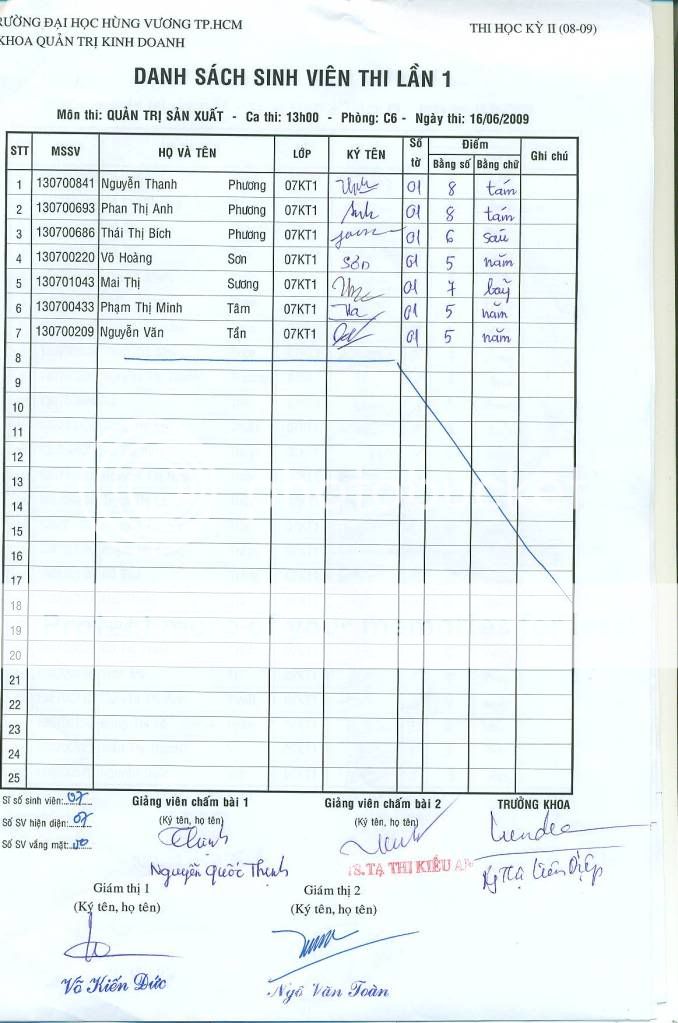 RƯỜNG ĐẠI HỌC HÙNG VƯƠNG TP.HCM
KHOA QUẢN TRỊ KINH DOANH
THI HỌC KỲ II (08-09)
DANH SÁCH SINH VIÊN THI LẦN 1
Môn thi: QUẢN TRỊ SẢN XUẤT - Ca thi: 13h00 - Phòng: C6 - Ngày thi: 16/06/2009
STT MSSV HỌ VÀ TÊN LỚP KÝ TÊN Số tờ Điểm Ghi chú
Bằng số Bằng chữ
1 130700841 Nguyễn Thanh Phương 07KT1 01 8 tám
2 130700693 Phan Thị Anh Phương 07KT1 Anh 01 8 tám
3 130700686 Thái Thị Bích Phương 07KT1 01 6 sáu
4 130700220 Võ Hoàng Sơn 07KT1 Sơn 01 5 năm
5 130701043 Mai Thị Sương 07KT1 01 7 bảy
6 130700433 Phạm Thị Minh Tâm 07KT1 01 5 năm
7 130700209 Nguyễn Văn Tấn 07KT1 01 5 năm
8
9
10
11
12
13
14
15
16
17
18
19
20
21
22
23
24
25
Sĩ số sinh viên: 07
Số SV hiện diện: 07
Số SV vắng mặt: 00
Giảng viên chấm bài 1
(Ký tên, họ tên)
Nguyễn Quốc Thịnh
Giảng viên chấm bài 2
(Ký tên, họ tên)
TS.TẠ THỊ KIỀU AN
TRƯỞNG KHOA
Giám thị 1
(Ký tên, họ tên)
Võ Kiến Đức
Giám thị 2
(Ký tên, họ tên)
Ngô Văn Toàn